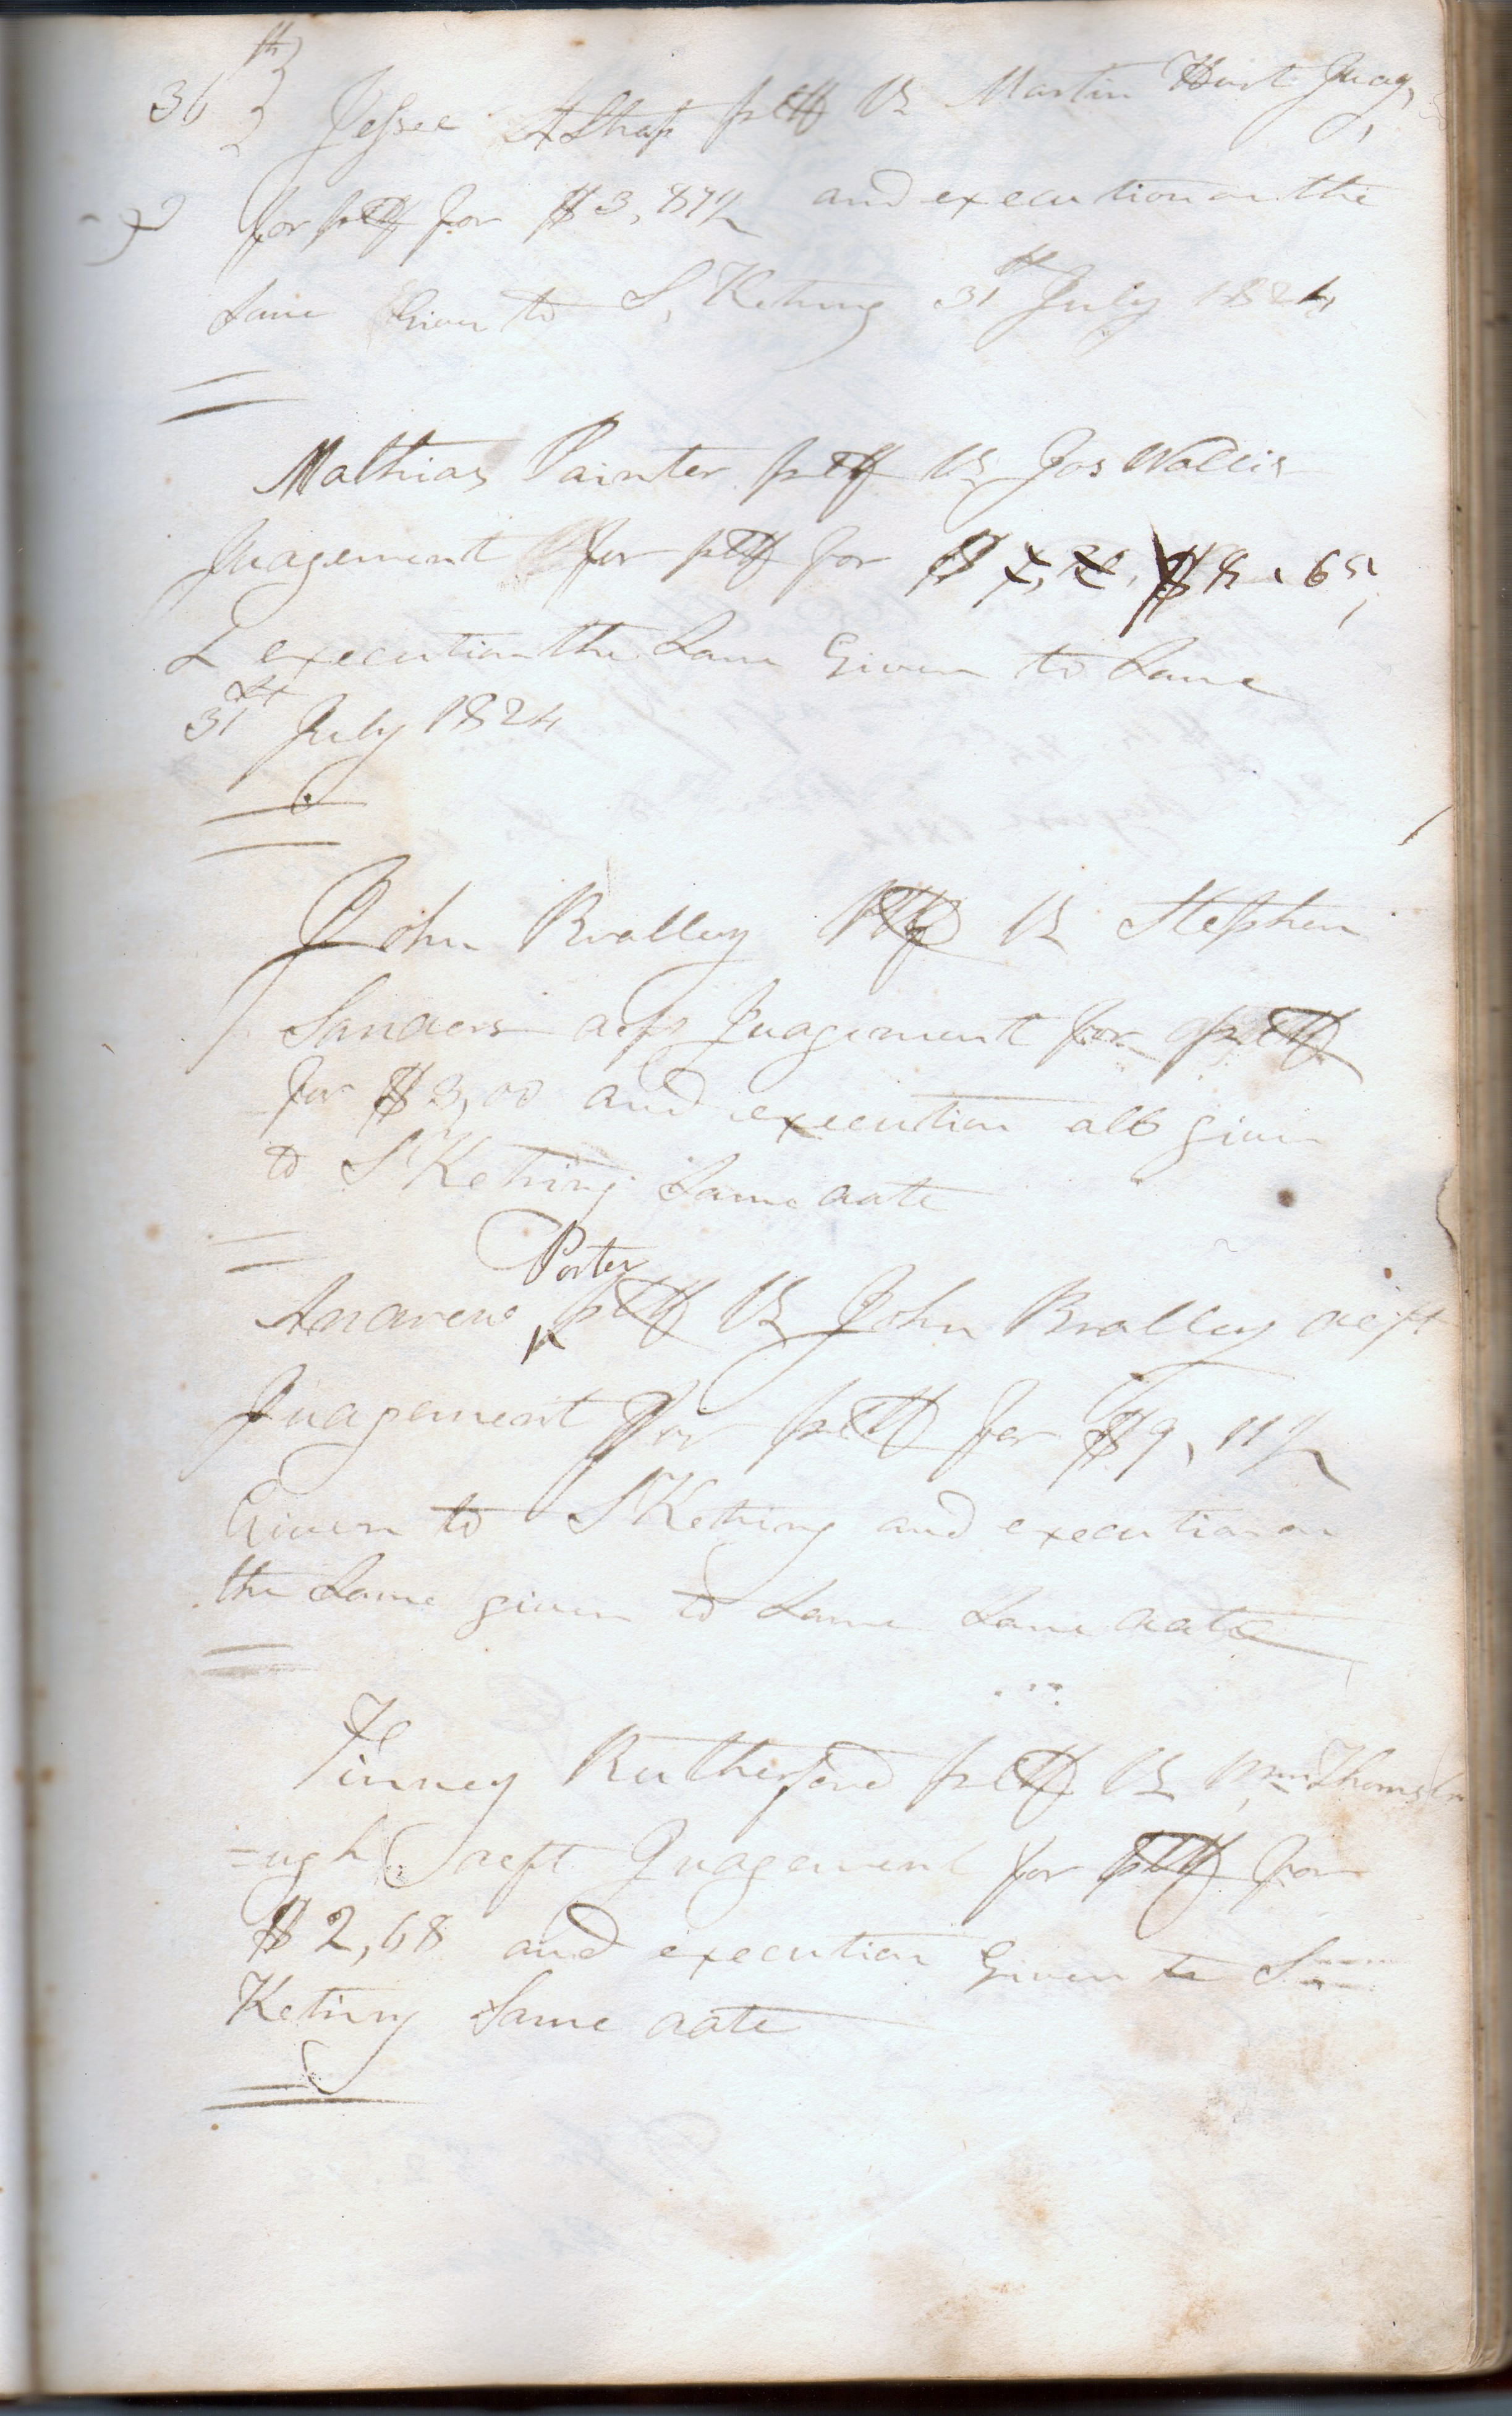 36th Jessee pltff vs Martin Hart Judg,
for pltff for $3,87½ and execution on the
Same Given to S, Kething 31st July 1824
Mathias Painter pltff vs Jos Wallis
Judgement for pltff for $ $8.65,
& execution the Same Given to Same
31st July 1824
John Bralley pltff vs Stephen
Sanders deft Judgement for pltff
for $3,00 and execution also given
to S Kething Same date
Porter
Andrew ^ pltff vs John Bralley deft
Judgement for pltff for $9,11½
Given to S Kething and execution on
the Same given to Same Same date
Finney Rutherford pltff vs Wm
=ugh deft Judgement for pltff for
$2,68 and execution Given to S
Kething Same date